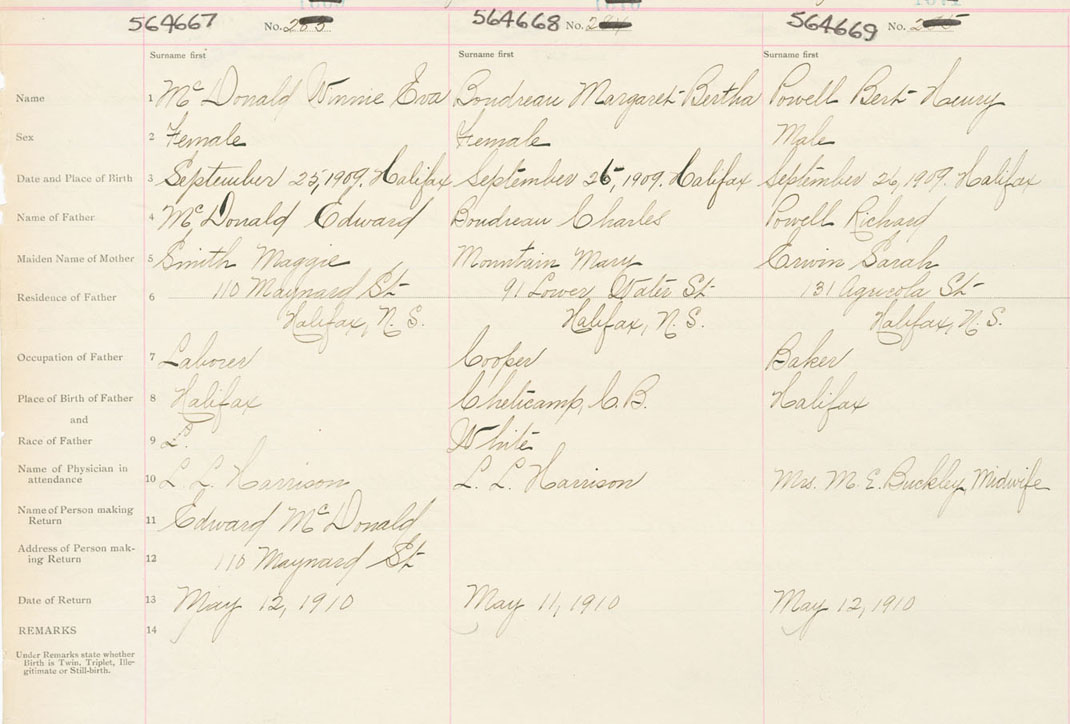 564667 No. 283 564668 No. 284 564669 No.
Surname first Surname first Surname first
Name 1 McDonald Winnie Eva Boudreau Margaret Bertha Powell Bert Henry
Sex 2 Female Female Male
Date and Place of Birth 3 September 25, 1909. Halifax September 26, 1909. Halifax September 26, 1909. Halifax
Name of Father 4 McDonald Edward Boudreau Charles Powell Richard
Maiden Name of Mother 5 Smith Maggie Mountain Mary Erwin Sarah
Residence of Father 6 110 Maynard St 91 Lower Water St 131 Agricola St
Halifax, N.S. Halifax, N.S. Halifax, N.S.
Occupation of Father 7 Laborer Cooper Baker
Place of Birth of Father 8 Halifax Cheticamp, C.B. Halifax
and
Race of Father 9 White
Name of Physician in
attendance 10 L. L. Harrison L. L. Harrison Mrs. M. E. Buckley, Midwife
Name of Person making
Return 11 Edward McDonald
Address of Person mak-
ing Return 12 110 Maynard St
Date of Return 13 May 12, 1910 May 11, 1910 May 12, 1910
REMARKS 14
Under Remarks state whether
Birth is Twin, Triplet, Ille-
gitimate or Still-birth.